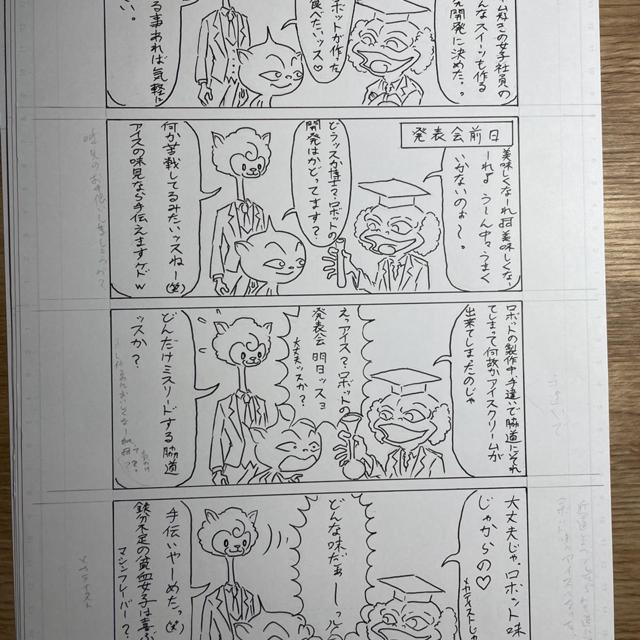 ーム好きの女子社員の
んなスイーツも作る
え開発に決めた。。
ボットが作った
食べたいッス♡
る事あれば気軽に
い。
発表会前日
美味しくなーれ♬美味しくな
ーれ♬、うーん中々うまく
いかないのぉ〜。
どうッスか博士?ロボットの
開発はかどってます?
何か苦戦してるみたいッスねー(笑)
アイスの味見なら手伝えますんでw
ロボットの製作中、手違いで脇道にそれ
てしまって何故かアイスクリームが
出来てしまったのじゃ
えっアイス?ロボットの
発表会明日ッスョ
大丈夫ッスか?
どんだけミスリードする脇道
ッスか?
大丈夫じゃ、ロボット味
じゃからの♡
メカテイストじ
どんな味だぁーーっ
手伝いやーめた。(笑)
鉄分不足の貧血女子は喜ぶ
マシンフレーバー?